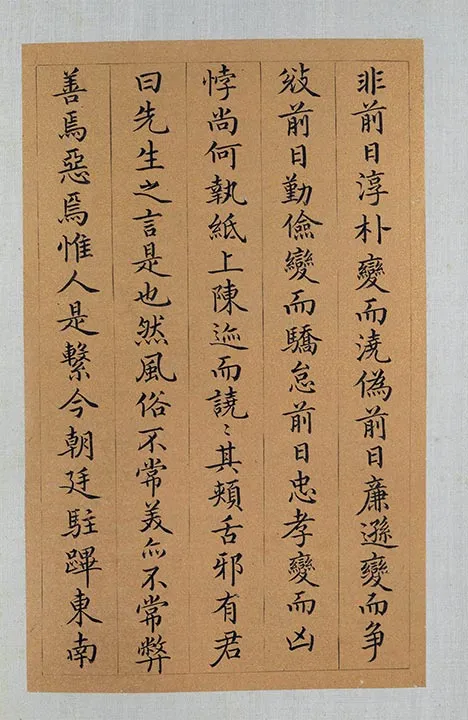 非前日淳朴變而澆偽前日廉遜變而争
前日勤儉變而驕怠前日忠孝變而凶
悖尚何執紙上陳迹而譊〻其頰舌邪有君
曰先生之言是也然風俗不常美亦不常弊
善焉惡焉惟人是繫今朝廷駐蹕東南